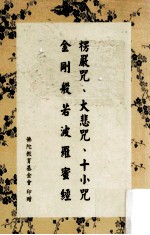 楞嚴咒、大悲咒、十小咒
金剛般若波羅蜜經
佛陀教育基金會 印贈